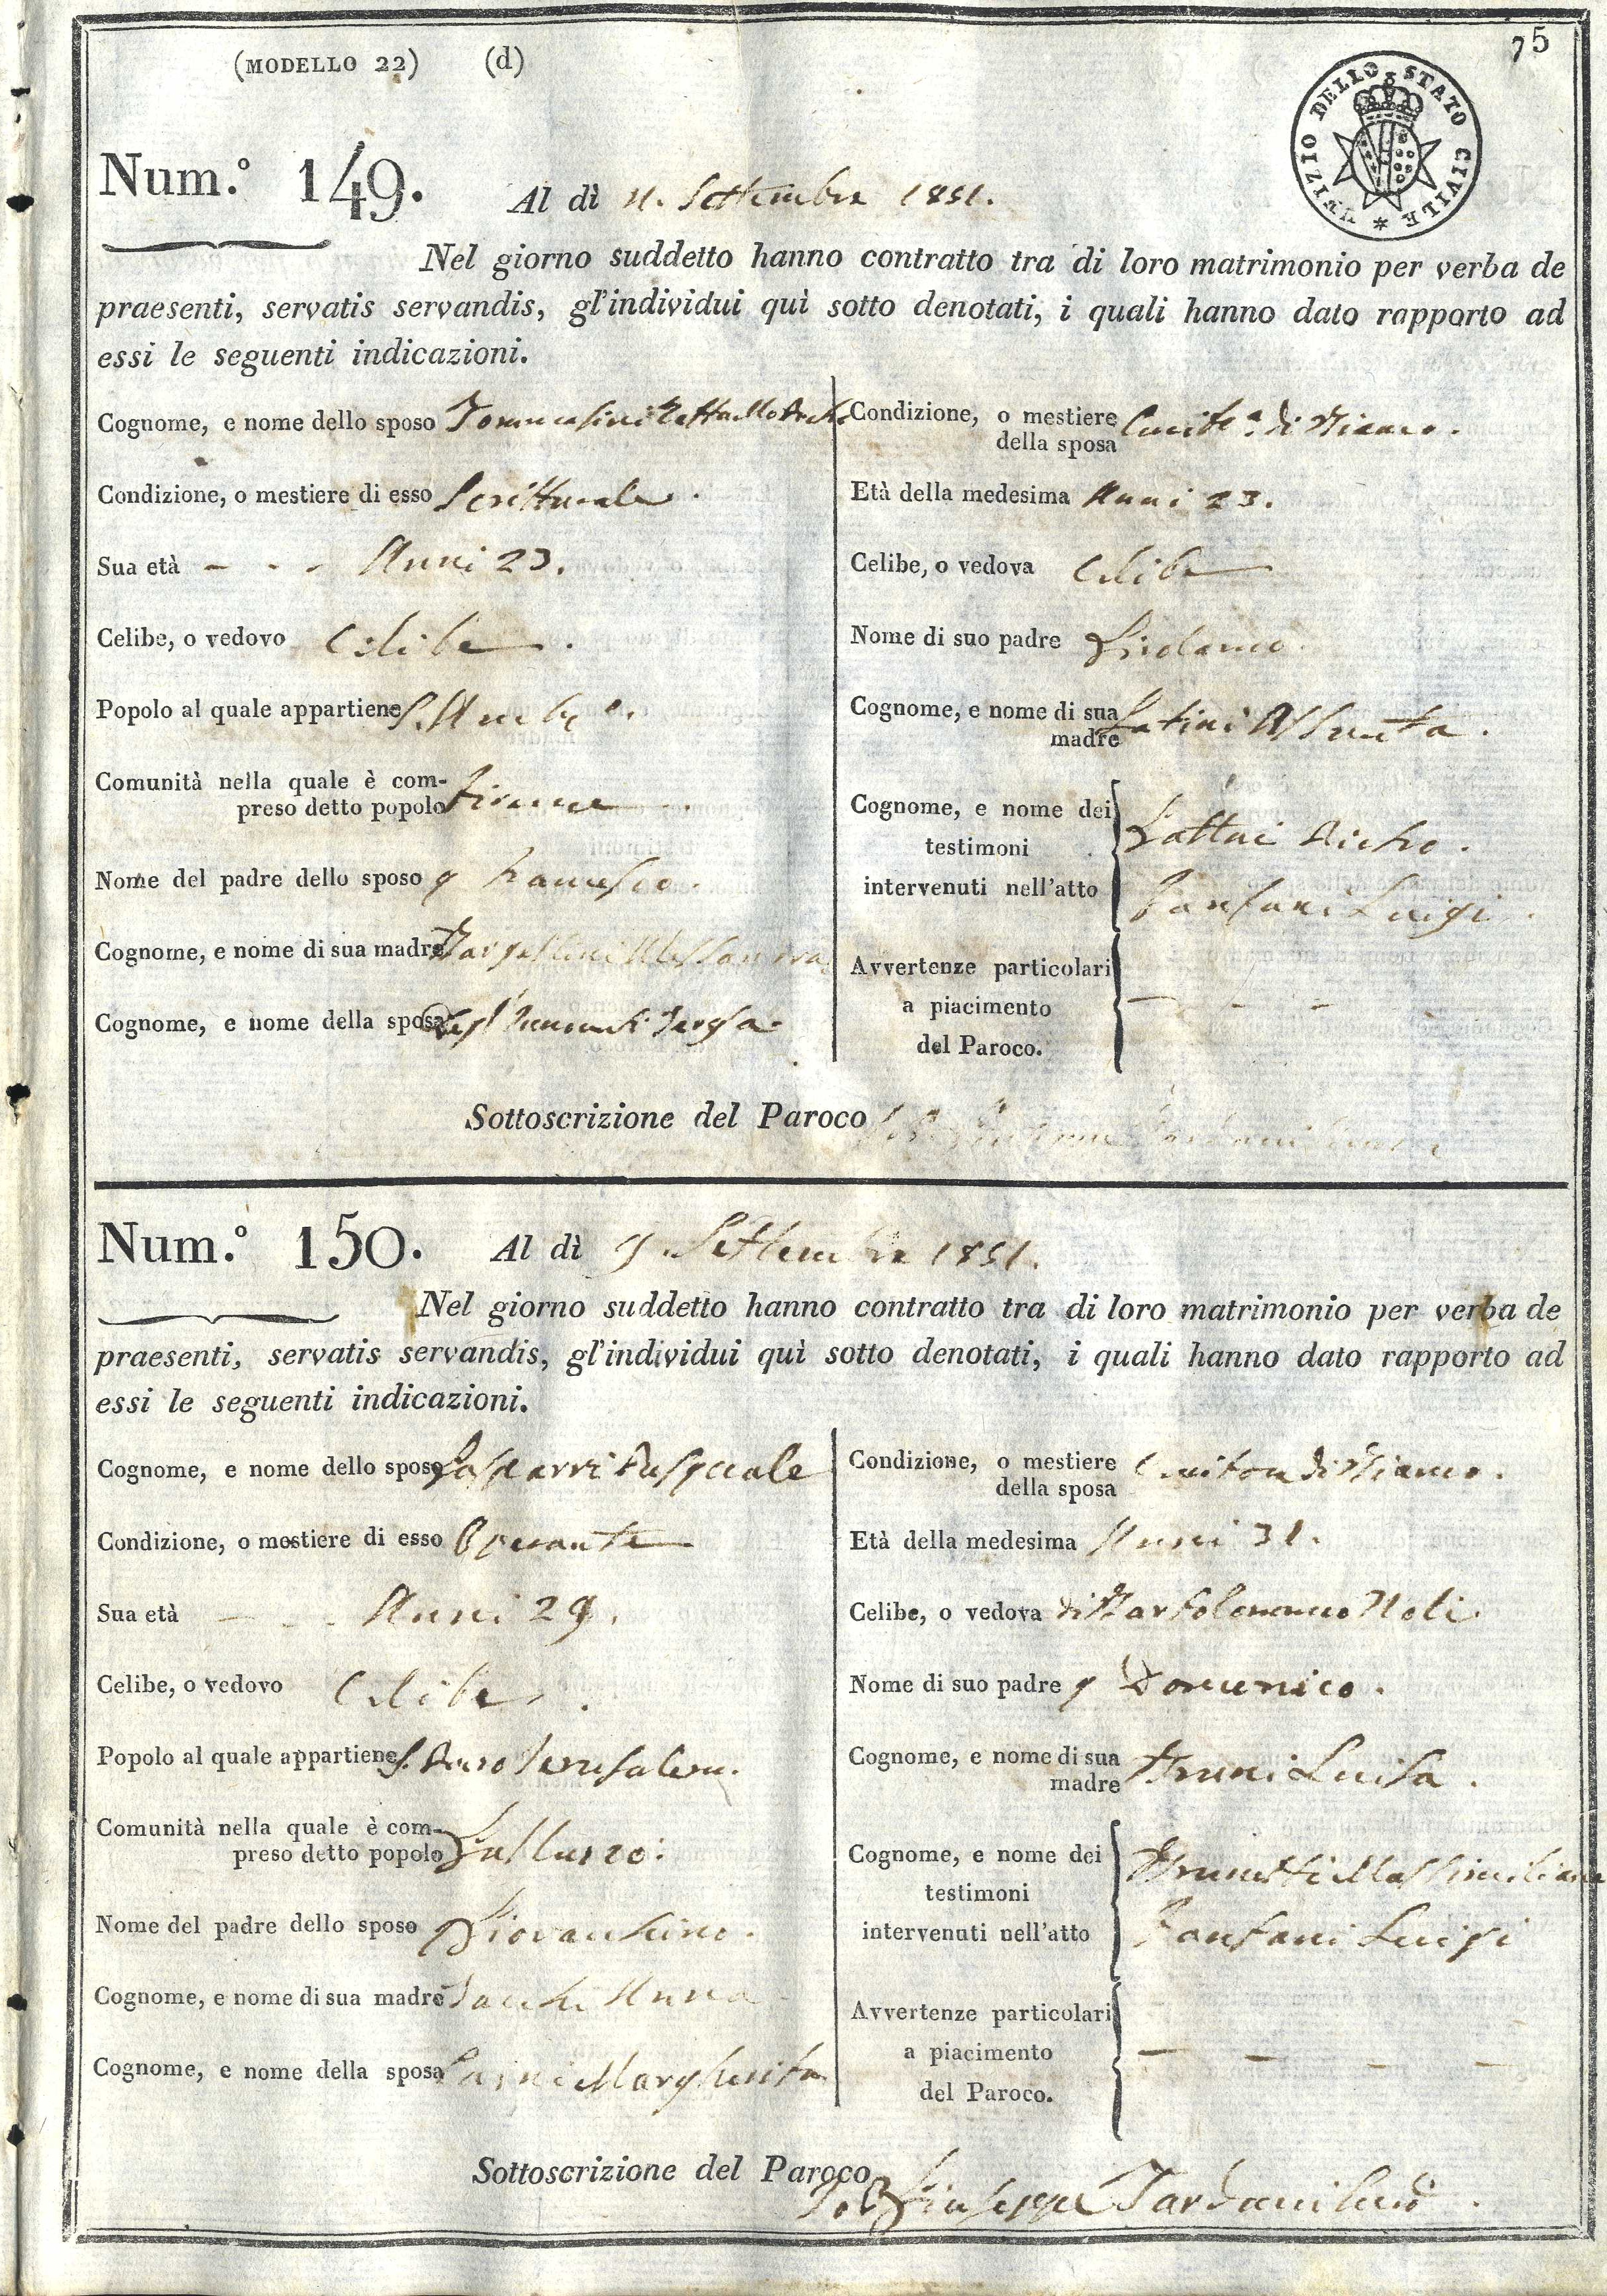 (MODELLO 22) (d)
75
UFIZIO DELLO STATO CIVILE
Num.° 149. Al dì 11. Settembre 1851.
Nel giorno suddetto hanno contratto tra di loro matrimonio per verba de
praesenti, servatis servandis, gl'individui quì sotto denotati, i quali hanno dato rapporto ad
essi le seguenti indicazioni.
Cognome, e nome dello sposo
Condizione, o mestiere di esso Scritturale.
Sua età - - - Anni 23.
Celibe, o vedovo Celibe.
Popolo al quale appartiene S.
Comunità nella quale è com-
preso detto popolo Firenze
Nome del padre dello sposo q Francesco.
Cognome, e nome di sua madre Alessandra
Cognome, e nome della sposa Teresa.
Condizione, o mestiere
della sposa di Bianco.
Età della medesima Anni 23.
Celibe, o vedova Celibe
Nome di suo padre
Cognome, e nome di sua
madre Latini Assunta.
Cognome, e nome dei
testimoni
intervenuti nell'atto
Fanfani Luigi.
Avvertenze particolari
a piacimento - - -
del Paroco.
Sottoscrizione del Paroco
Num.° 150. Al dì Settembre 1851.
Nel giorno suddetto hanno contratto tra di loro matrimonio per verba de
praesenti, servatis servandis, gl'individui quì sotto denotati, i quali hanno dato rapporto ad
essi le seguenti indicazioni.
Cognome, e nome dello sposo Gasparri Pasquale
Condizione, o mestiere di esso Operante
Sua età - - - Anni 29.
Celibe, o vedovo Celibe.
Popolo al quale appartiene S. Jerusalem.
Comunità nella quale è com-
preso detto popolo Galluzzo.
Nome del padre dello sposo
Cognome, e nome di sua madre Anna
Cognome, e nome della sposa Margherita
Condizione, o mestiere
della sposa di Bianco.
Età della medesima Anni 31.
Celibe, o vedova di Bartolommeo
Nome di suo padre q Domenico.
Cognome, e nome di sua
madre Bruni Luisa.
Cognome, e nome dei
testimoni Brunetti Massimiliano
intervenuti nell'atto Fanfani Luigi
Avvertenze particolari
a piacimento - - - -
del Paroco.
Sottoscrizione del Paroco
Giuseppe